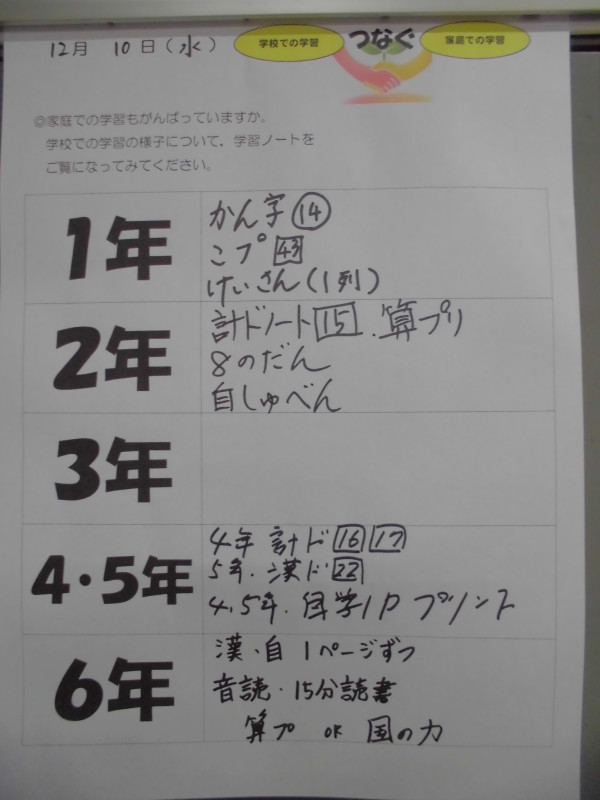 12月 10日(水)
学校での学習 つなぐ 家庭での学習
◎家庭での学習もがんばっていますか。
学校での学習の様子について，学習ノートを
ご覧になってみてください。
1年
かん字⑭
こプ 43
けいさん(1列)
2年
計ドノート 15 . 算プリ
8のだん
自しゅべん
3年
4・5年
4年 計ド 16 17
5年.漢ド 22
4.5年.自学1P プリント
6年
漢・自 1ページずつ
音読・15分読書
算プ or 国の力